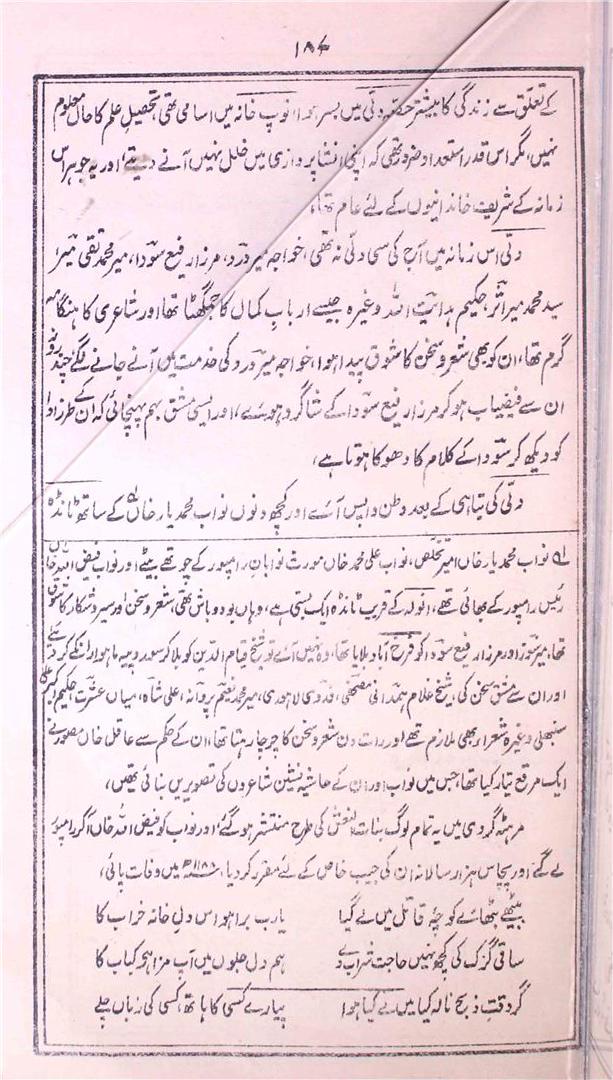 ۱۸۴
کے تعلق سے زندگی کا بیشتر حصہ دتی میں بسر ہوا، توپ خانہ میں اسامی تھی، تحصیل علم کا حال معلوم
نہیں، مگر اس قدر استعداد ضرور تھی کہ اپنی انشا پردازی میں خلل نہیں آنے دیتے، اور یہ جوہر اس
زمانہ کے شریف خاندانیوں کے لئے عام تھا،
دتی اس زمانہ میں آج کی سی دتی نہ تھی، خواجہ میر درد، مرزا رفیع سودا، میر محمد تقی میر
سید محمد میر اثر، حکیم ہدایت اللہ وغیرہ جیسے ارباب کمال کا جمگھٹا تھا اور شاعری کا ہنگامہ
گرم تھا، ان کو بھی شعر و سخن کا شوق پیدا ہوا، خواجہ میر درد کی خدمت میں آنے جانے لگے چند روز
ان سے فیضیاب ہو کر مرزا رفیع سودا کے شاگرد ہوئے، اور ایسی مشق بہم پہنچائی کہ ان کے طرز ادا
کو دیکھ کر سودا کے کلام کا دھوکا ہوتا ہے،
دتی کی تباہی کے بعد وطن واپس آئے اور کچھ دنوں نواب محمد یار خاں کے ساتھ ٹانڈہ
لہ نواب محمد یار خاں امیر تخلص، نواب علی محمد خاں مورث نوابان رامپور کے چوتھے بیٹے اور نواب فیض اللہ خاں
رئیس رامپور کے بھائی تھے، انولہ کے قریب ٹانڈہ ایک بستی ہے، وہاں بود و باش تھی، شعر و سخن اور سیر و شکار کا شوق
تھا، میر سوز اور مرزا رفیع سودا کو فرخ آباد بلایا تھا، وہ نہیں آئے تو شیخ قیام الدین کو بلا کر سو روپیہ ماہوار ان کے کر دیئے
اور ان سے مشق سخن کی، شیخ غلام ہمدانی مصحفی، فدوی لاہوری، میر محمد نعیم پروانہ، علی شاہ، میاں عشرت، حکیم کبیر
سنبھلی وغیرہ شعرا بھی ملازم تھے اور رات دن شعر و سخن کا چرچا رہتا تھا، ان کے حکم سے عاقل خاں مصور نے
ایک مرقع تیار کیا تھا، جس میں نواب اور ان کے حاشیہ نشین شاعروں کی تصویریں بنائی تھیں،
مرہٹہ گردی میں یہ تمام لوگ بنات النعش کی طرح منتشر ہو گئے، اور نواب کو فیض اللہ خاں آکر رامپور
لے گئے اور پچاس ہزار سالانہ ان کی جیب خاص کے لئے مقرر کر دیا، ۱۱۸۸ھ میں وفات پائی،
بیٹھے بٹھائے کوچۂ قاتل میں لے گیا یارب برا ہو اس دل خانہ خراب کا
ساقی گزک کی کچھ نہیں حاجت شراب دے ہم دل جلوں میں آپ مزا ہو کباب کا
گر وقت ذبح نالہ کیا میں نے کیا ہوا پیارے کسی کا ہاتھ، کسی کی زباں چلے